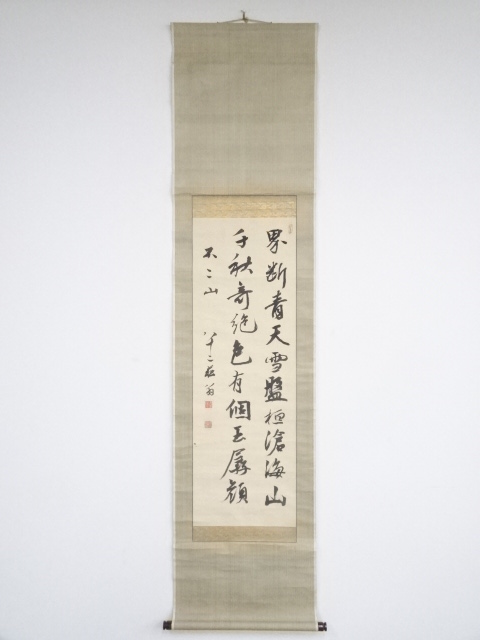 界断青天雪盤極滄海山
千秋奇絶色有個玉孱顔
不二山
八十二
翁